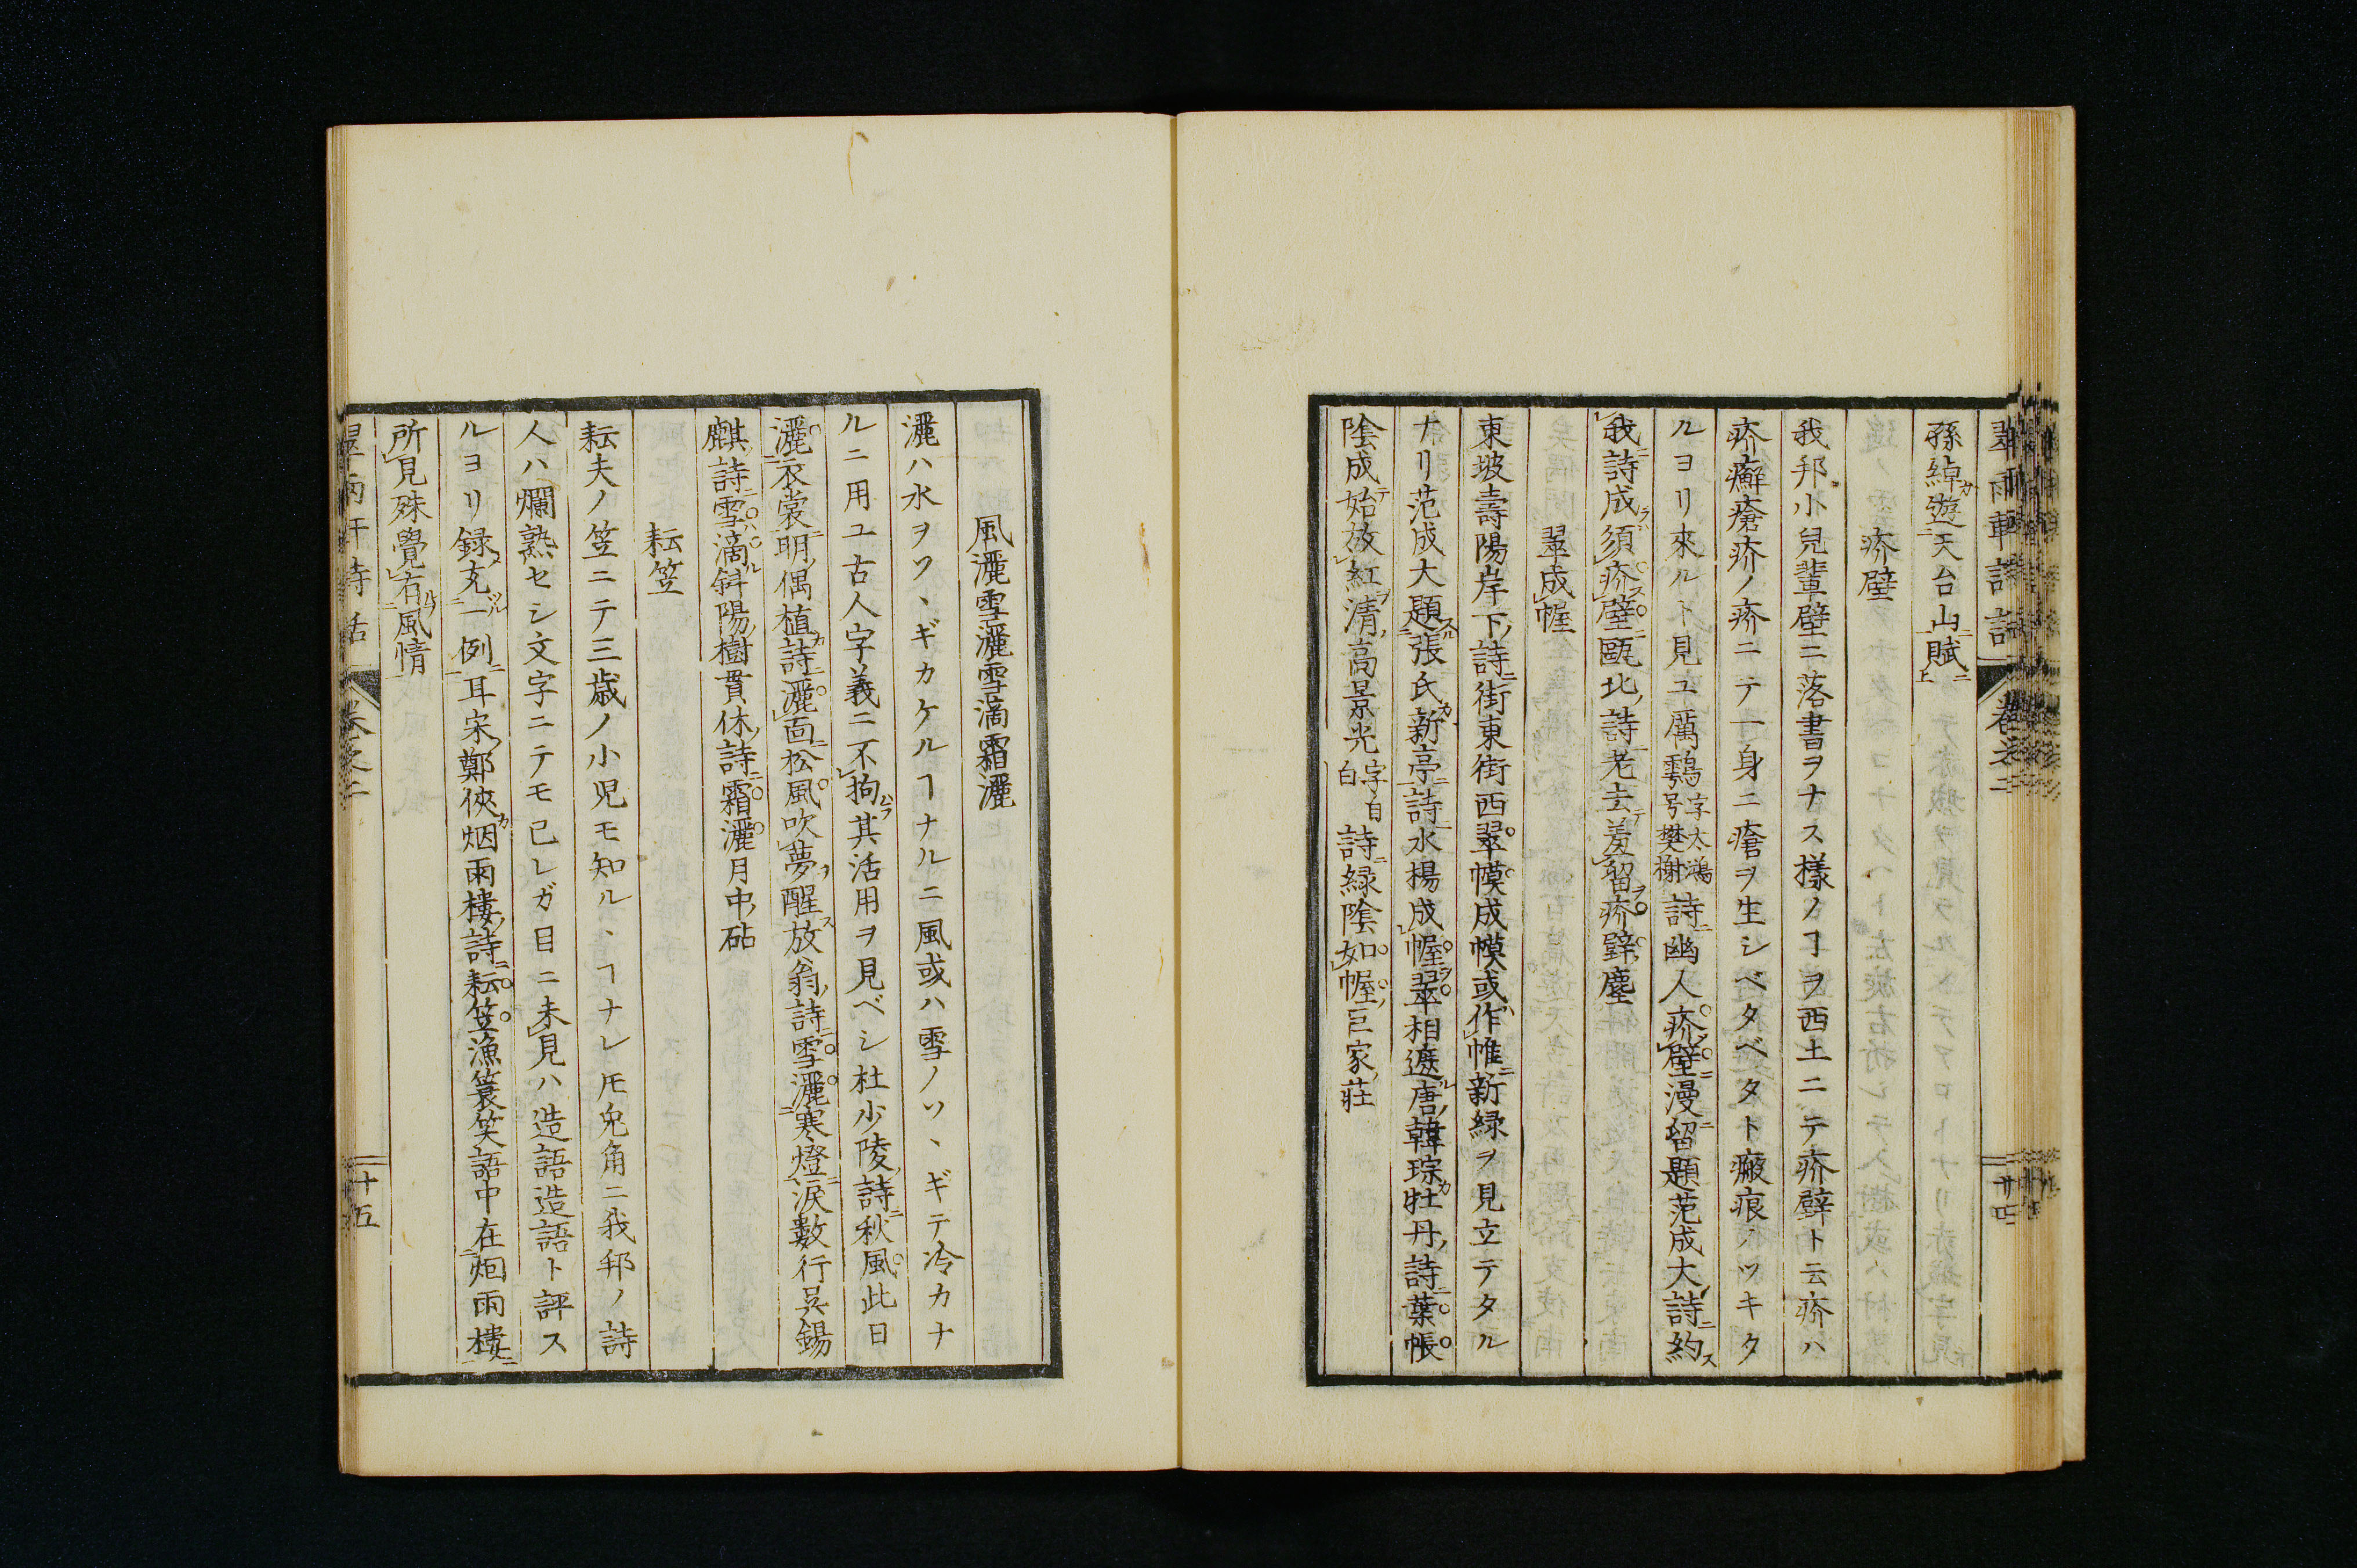 孫綽カ遊天台山賦ニ
疥壁
我邦小兒輩壁ニ落書ヲナス樣ノヿヲ西土ニテ疥壁ト云疥ハ
疥癬瘡疥ノ疥ニテ一身ニ瘡ヲ生シベタベタト瘢痕ノツキタ
ルヨリ來ルト見ユ厲鶚字太鴻号樊榭詩ニ幽人疥壁ニ漫ニ留題范成大詩ニ約ス
我詩成ラハ須疥ス壁ニ甌北詩ニ老去テ羞留ヲ疥壁塵
翠成幄
東坡壽陽岸下詩ニ街東街西翠幄成幄或ハ作帷ニ新緑ヲ見立テタル
ナリ范成大題スル張氏カ新亭ニ詩ニ水楊成幄ヲ翠相遮ル唐韓琮カ牡丹詩ニ葉帳
陰成テ始放紅ヲ清高景光字自白詩ニ緑陰如幄巨家莊
風灑雪灑雪滴霜灑
灑ハ水ヲソヽギカケルヿナルニ風或ハ雪ノソヽギテ冷カナ
ルニ用ユ古人字義ニ不拘ハラ其活用ヲ見ベシ杜少陵詩ニ秋風此日
灑衣裳ニ明偶植カ詩ニ灑面ニ松風吹夢ヲ醒ス放翁詩ニ雪灑寒燈ニ涙數行呉錫
麒詩ニ雪ハ滴ル斜陽樹貫休詩ニ霜灑月中砧
耘笠
耘夫ノ笠ニテ三歳ノ小児モ知ルヽヿナレ𪜈兔角ニ我邦ノ詩
人ハ爛熟セシ文字ニテモ己レガ目ニ未見ハ造語造語ト評ス
ルヨリ録メ充ツル一例ニ耳宋鄭俠カ烟雨樓詩ニ耘笠漁簑笑語中在烟雨樓ニ
所見殊覺有ルヲ風情
卷之二
十五